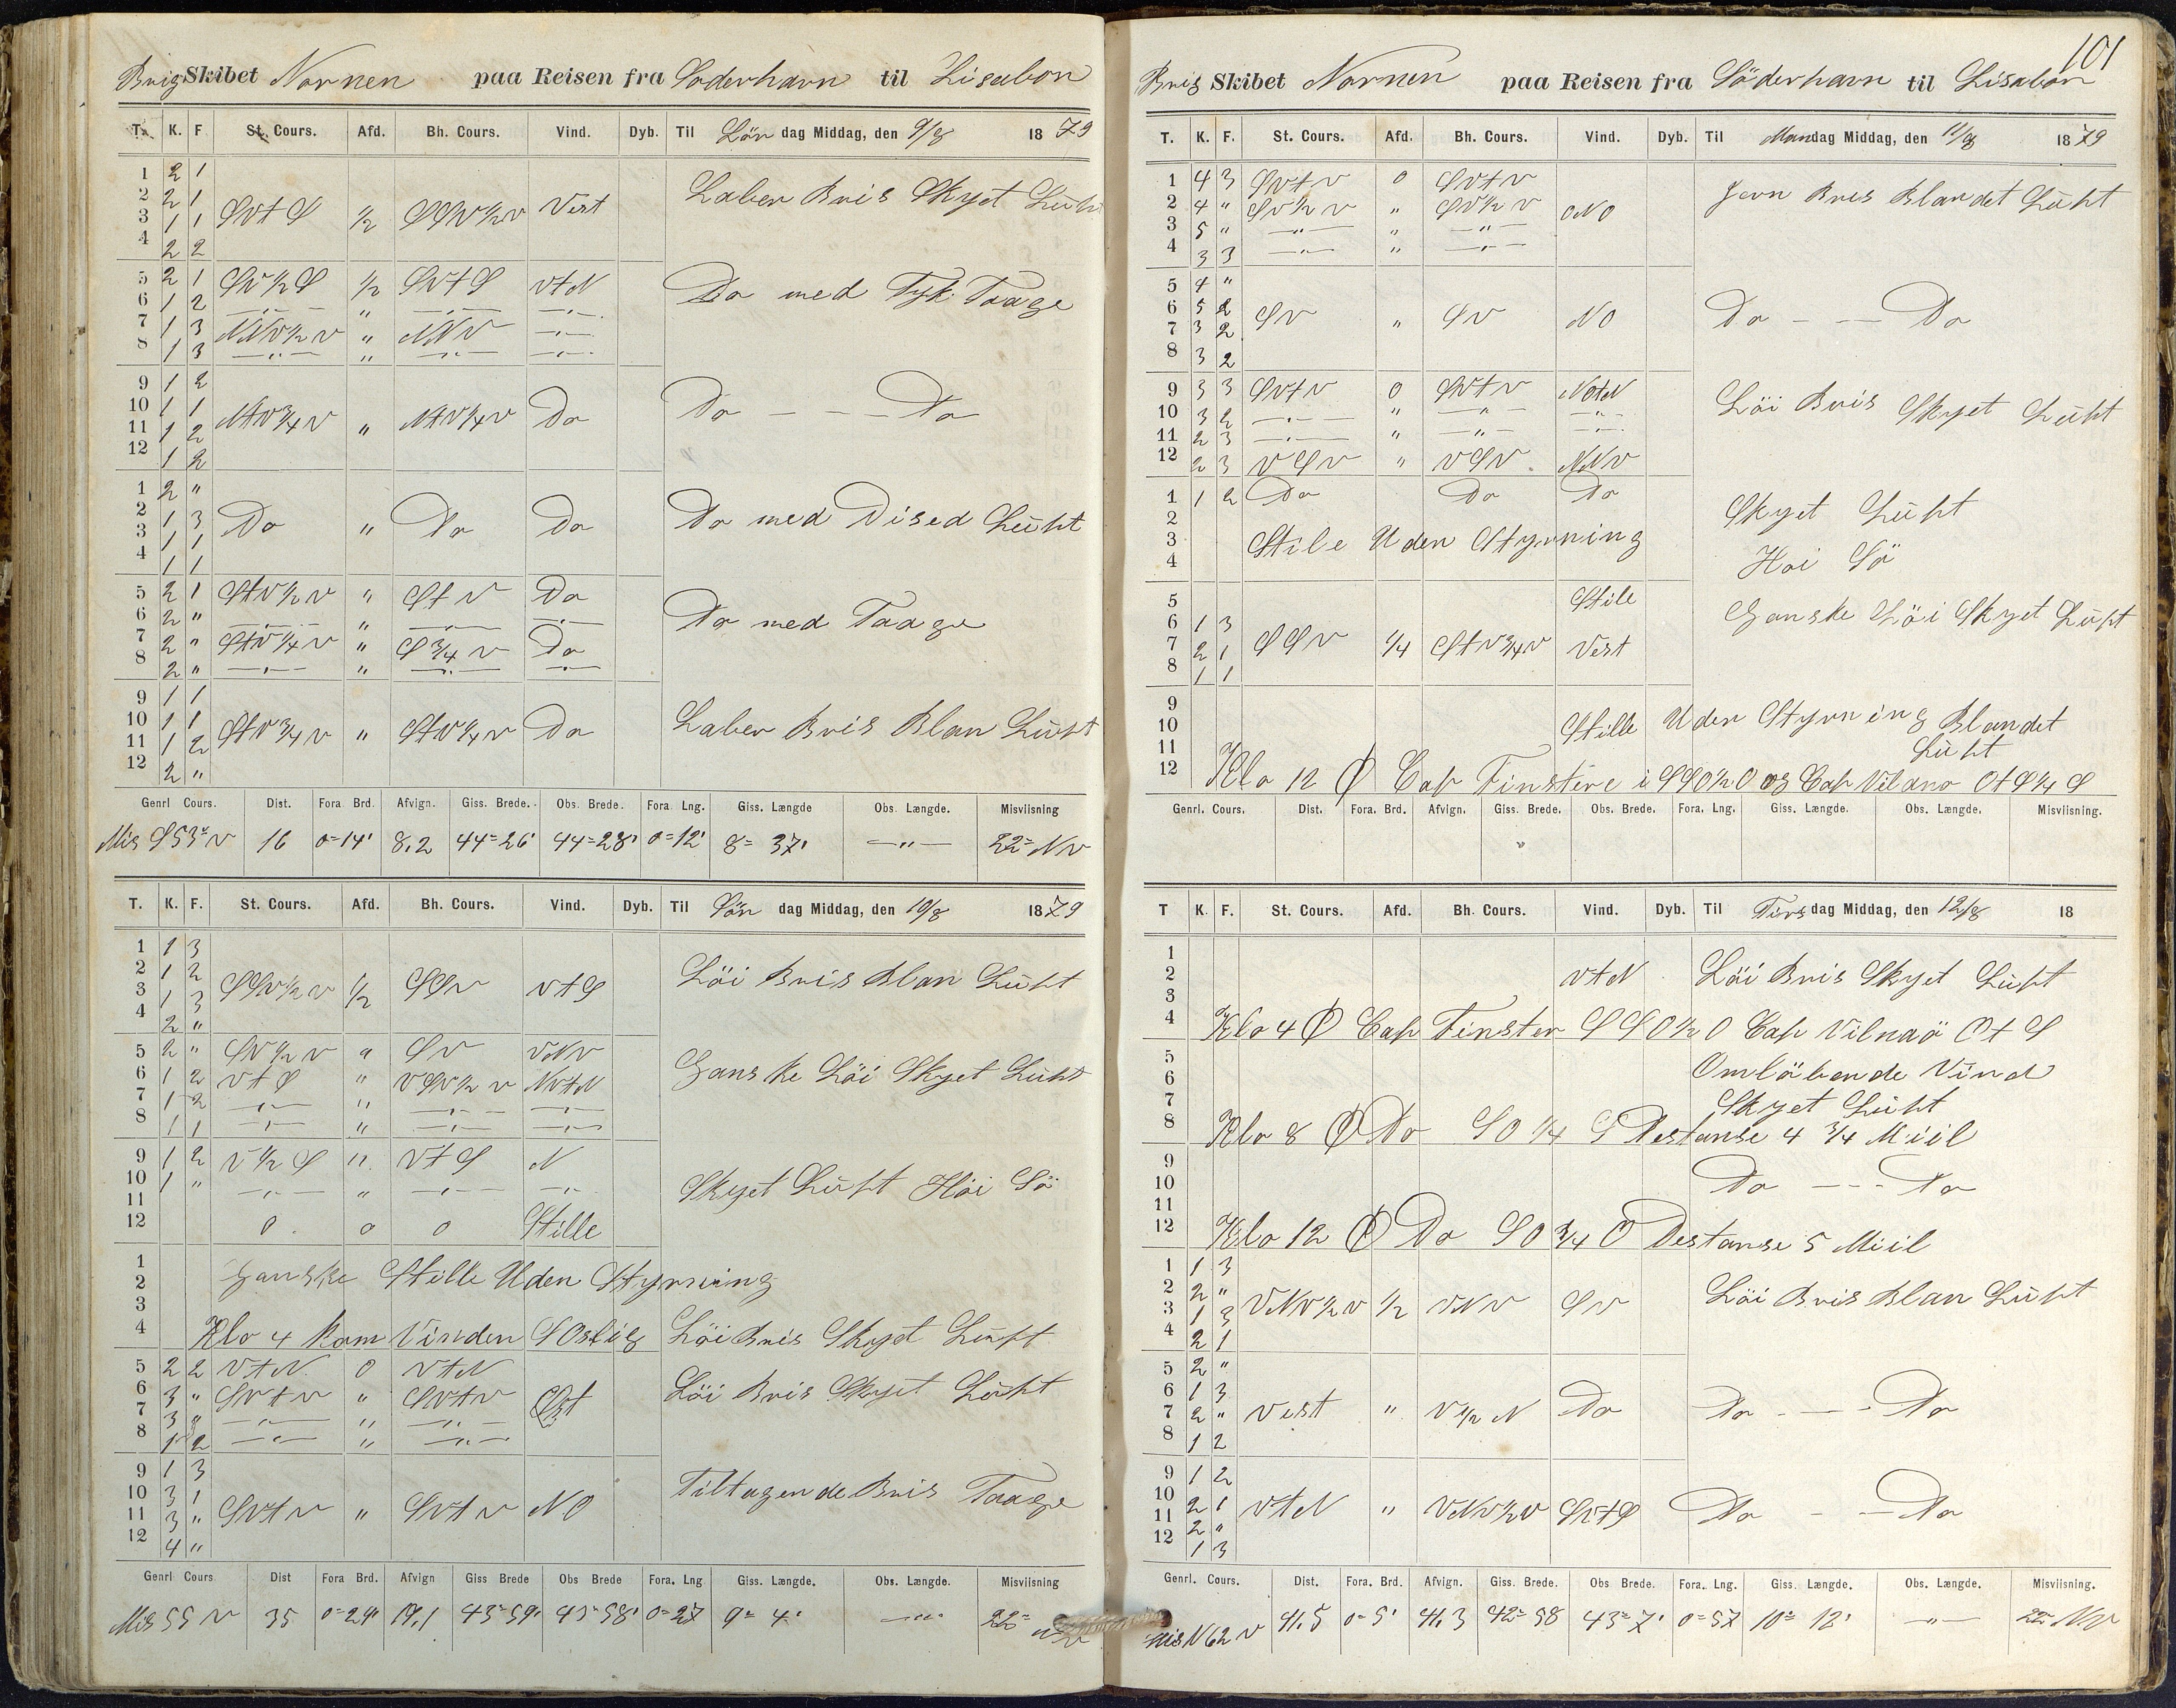 Brig Skibet Nornen paa Reisen fra Söderhavn til Lisabon
T. K. F. St. Cours. Afd. Bh. Cours. Vind. Dyb. Til Lör dag Middag, den 9/8 1879
1 2 1
2 2 1 Laber Bris Skyet Luft
3 1 1 SVtS 1/2 SSV1/2V Vest
4 2 2
5 2 1 SV1/2S 1/2 SVtS VtN
6 1 2 —"— " —"— —"— Do med Tyk Taage
7 1 3 NNV1/2V " NNV —"—
8 1 3 —"— " —"— —"—
9 1 2
10 1 1 NtV3/4V " NtV1/4V Do Do — — — Do
11 1 2
12 1 2
1 2 "
2 1 3 Do " Do Do Do med Dised Luft
3 1 1
4 1 1
5 2 1 StV1/2V " StV Do
6 2 " —"— " —"— —"— Do med Taage
7 2 " StV1/4V " S3/4V Do
8 2 " —"— " —"— —"—
9 1 1
10 1 1 StV3/4V " StV1/4V Do Laber Bris Blan Luft
11 1 2
12 2 "
Genrl Cours. Dist. Fora Brd. Afvign. Giss. Brede. Obs. Brede. Fora Lng. Giss. Længde Obs. Længde. Misviisning
Mis S53°V 16 0=14' 8,2 44=26' 44=28' 0=12' 8= 37' —"— 22= NV
T. K. F. St. Cours. Afd. Bh. Cours. Vind. Dyb. Til Sön dag Middag, den 10/8 1879
1 1 3
2 1 2 SSV1/2V 1/2 SSV VtS Löi Bris Blan Luft
3 1 3
4 2 "
5 2 " SV1/2V " SV VNV
6 1 2 VtS " VSV1/2V NVtN Ganske Löi Skyet Luft
7 1 2 —"— " —"— —"—
8 1 1 —"— " —"— —"—
9 1 2 V1/2S " VtS N
10 1 " —"— " —"— —"— Skyet Luft Höi Sö
11
12 0 0 0 Stille
1
2 Ganske Stille Uden Styrning
3
4 Klo 4 kom Vinden SOstlig Löi Bris Skyet Luft
5 2 2 VtN 0 VtN
6 3 " SVtV " SVtV Ost Löi Bris Skyet Luft
7 3 " —"— " —"—
8 1 2 —"— " —"—
9 1 3
10 3 1 SVtV " SVtV NO Tiltagende Bris Taage
11 3 "
12 4 "
Genrl Cours Dist Fora Brd. Afvign Giss Brede Obs Brede Fora. Lng Giss. Længde. Obs. Længde. Misviisning
Mis S5 V 35 0=29' 19,1 43=59' 43=58' 0=27 9= 4' —"— 22=
101
Brig Skibet Nornen paa Reisen fra Söderhavn til Lisabon
T. K. F. St. Cours. Afd. Bh. Cours. Vind. Dyb. Til Mandag Middag, den 11/8 1879
1 4 3 SVtV 0 SVtV
2 4 " SV1/2V " SV1/2V ONO Jevn Bris Blandet Luft
3 5 " —"— " —"—
4 3 3 —"— " —"—
5 4 "
6 5 2 SV " SV NO Do — — Do
7 3 2
8 3 2
9 3 3 SVtV 0 SVtV NOtN
10 3 2 —"— " —"— —"— Löi Bris Skyet Luft
11 2 3 —"— " —"— —"—
12 2 3 VSV " VSV NNV
1 1 2 Do Do Do
2 Skyet Luft
3 Stile Uden Styrning
4 Hoi Sö
5 Stile
6 1 3 Ganske Löi Skyet Luft
7 2 1 SSV 1/4 StV3/4V Vest
8 1 1
9
10 Stille Uden Styrning Blandet
11 Luft
12 Klo 12 O Cap Finstere i SSO1/2O og Cap Vilano OtS1/4S
Genrl. Cours. Dist. Fora. Brd. Afvign. Giss. Brede. Obs. Brede. Fora. Lng. Giss. Længde. Obs. Længde. Misviisning.
"
T K. F. St. Cours. Afd. Bh. Cours. Vind. Dyb. Til Tirsdag Middag, den 12/8 18
1
2 VtN Löi Bris Skyet Luft
3
4 Klo 4 O Cap Finster SSO1/2O Cap Vilnaö OtS
5
6 Omlöbende Vind
7 Skyet Luft
8 Klo 8 O Do SO1/4S Destanse 4 3/4 Miil
9
10 Do - - - Do
11
12 Klo 12 O Do SO3/4O Destanse 5 Miil
1 1 3
2 2 " VNV1/2V 1/2 VNV SV Löi Bris Blan Luft
3 1 3
4 2 1
5 2 "
6 1 3
7 2 " Vest " V1/2N Do Do - — - Do
8 1 2
9 1 2
10 2 1 VtN " VNV1/2V SVtS Do - — Do
11 2 "
12 1 3
Genrl. Cours. Dist. Fora. Brd. Afvign. Giss. Brede. Obs Brede. Fora. Lng. Giss. Længde. Obs. Længde. Misviisning.
Mis N62 V 41.5 0=5' 41,3 42=58 43=7' 0=57 10= 12' —"— 22= NV